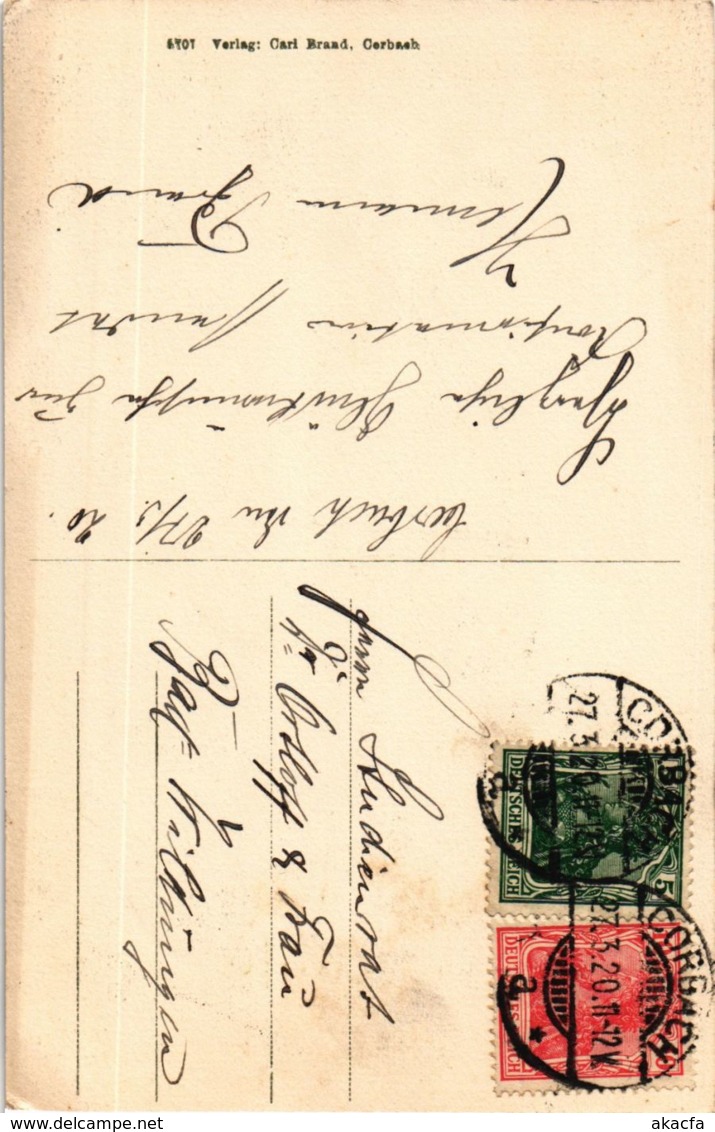 6701 Verlag: Carl Brand, Corbach
Corbach den 27/3. 20.
Herzliche Glückwünsche zur
Konfirmation sendet
Hermann
Herrn Studienrat
& Frau
Bad-Wildungen
CORBACH
27.3.20.11-12V.
a
DEUTSCHES REICH
CORBACH
27.3.20.11-12V.
a
DEUTSCHES REICH
akacfa